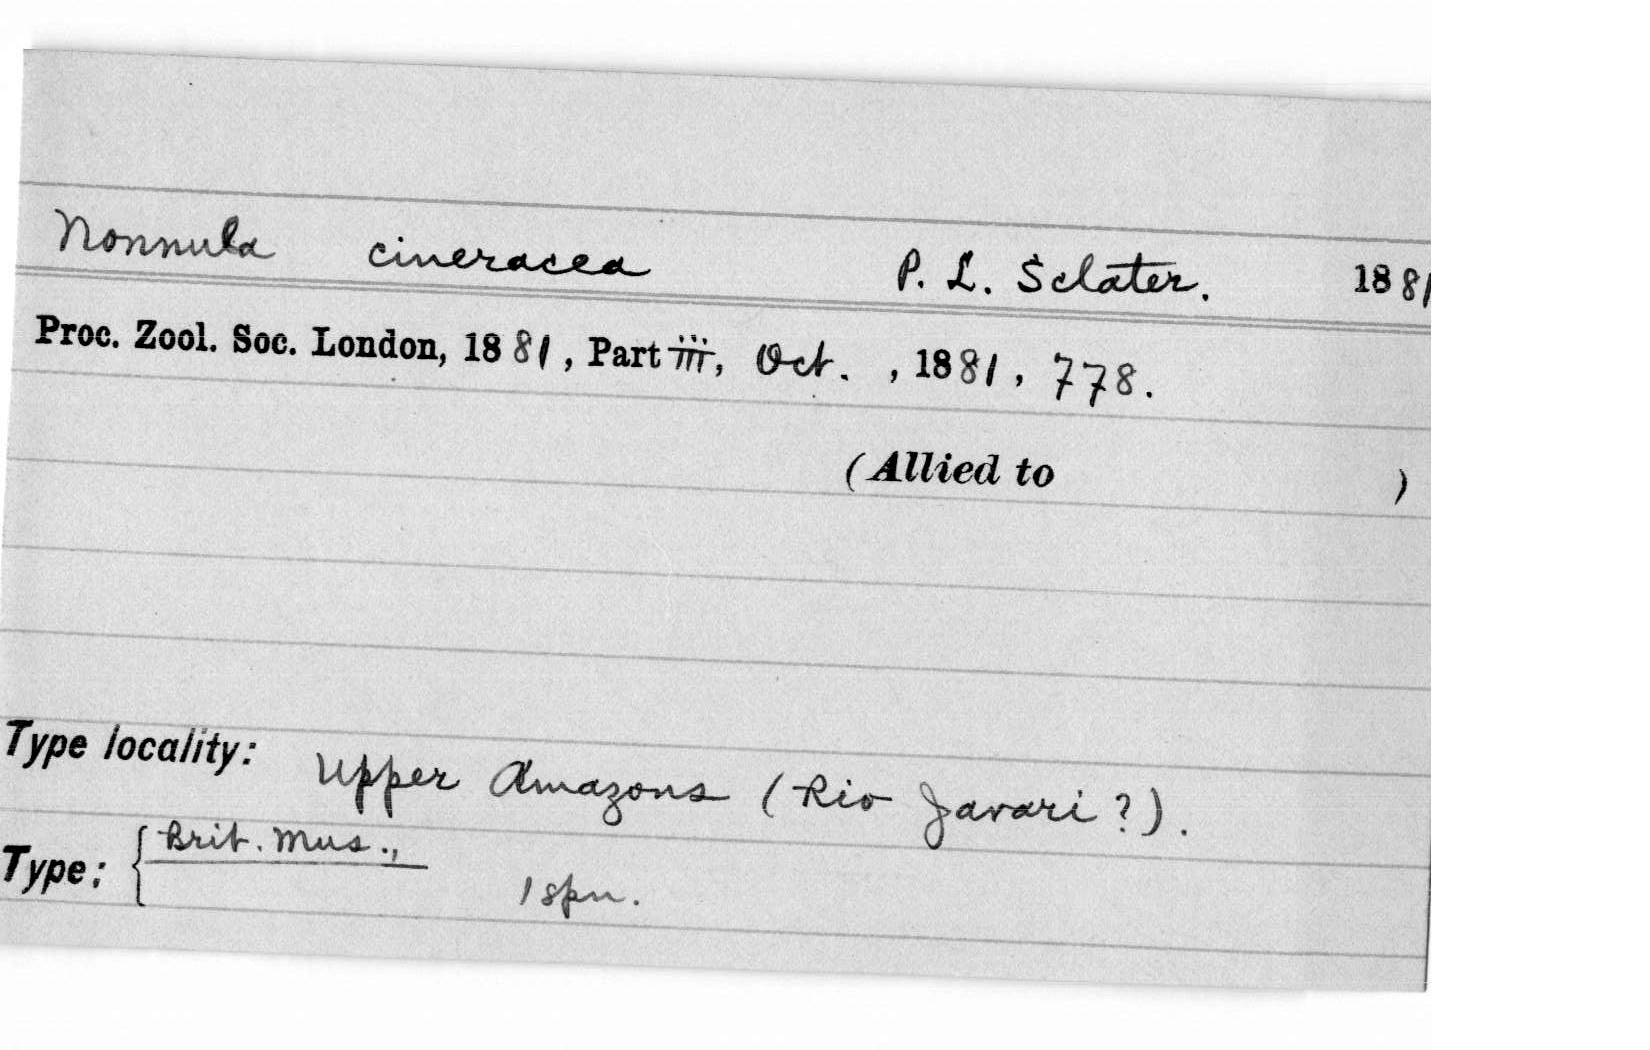 Nonnula cineracea P. L. Sclater. 1881
Proc. Zool. Soc. London, 1881, Part iii, Oct. , 1881, 778.
(Allied to )
Type locality: Upper Amazons (Rio Javari?).
Type: { Brit. Mus.,
1 spn.